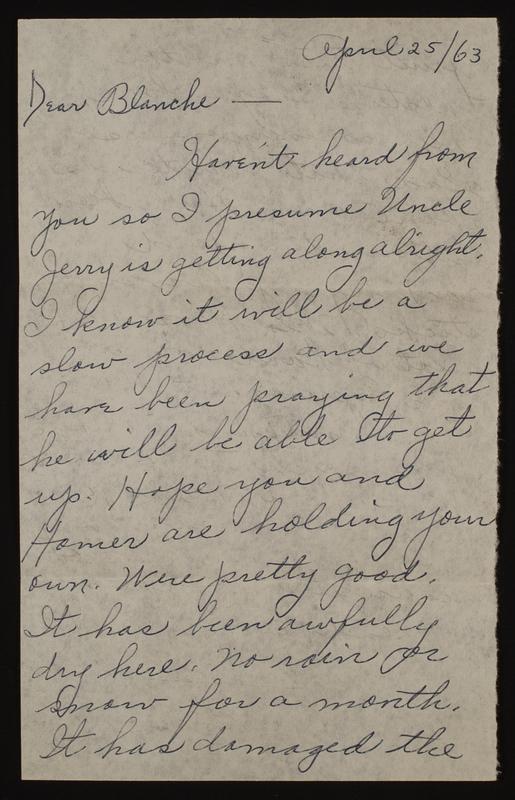 April 25/63
Dear Blanche —
Haven't heard from
you so I presume Uncle
Jerry is getting along alright.
I know it will be a
slow process and we
have been praying that
he will be able to get
up. Hope you and
Homer are holding your
own. Were pretty good.
It has been awfully
dry here. No rain or
snow for a month.
It has damaged the